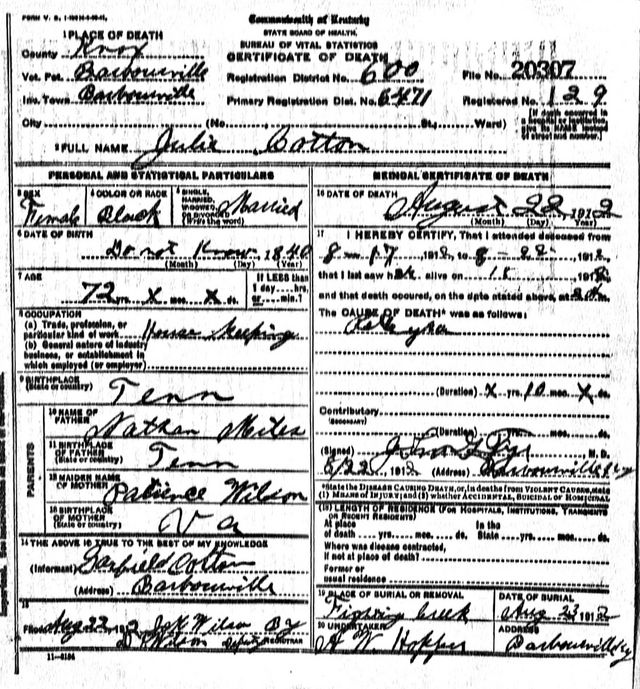 Commonwealth of Kentucky
STATE BOARD OF HEALTH
BUREAU OF VITAL STATISTICS
CERTIFICATE OF DEATH
1 PLACE OF DEATH
County Knox
Vot. Pct. Barbourville
Inc. Town Barbourville
Registration District No. 600
File No. 20307
Primary Registration Dist. No. 6471
Registered No. 129
City (No. St., Ward)
(If death occurred in a hospital or institution, give its NAME instead of street and number.)
2 FULL NAME Julie Cotton
PERSONAL AND STATISTICAL PARTICULARS
3 SEX
Female
4 COLOR OR RACE
Black
5 SINGLE, MARRIED, WIDOWED OR DIVORCED (Write the word)
Married
6 DATE OF BIRTH
Do not Know, 1840
(Month) (Day) (Year)
7 AGE
72 yrs. X mos. X ds.
If LESS than 1 day....hrs. or....min.?
8 OCCUPATION
(a) Trade, profession, or particular kind of work House Keeping
(b) General nature of industry business, or establishment in which employed (or employer)
9 BIRTHPLACE (State or country)
Tenn
PARENTS
10 NAME OF FATHER
Nathan Miles
11 BIRTHPLACE OF FATHER (State or country)
Tenn
12 MAIDEN NAME OF MOTHER
Patience Wilson
13 BIRTHPLACE OF MOTHER (State or country)
Va
14 THE ABOVE IS TRUE TO THE BEST OF MY KNOWLEDGE
(Informant) Garfield Cotton
(Address) Barbourville
15
Filed Aug 22, 1912 Wilson By
Wilson Deputy REGISTRAR
11-5184
MEDICAL CERTIFICATE OF DEATH
16 DATE OF DEATH
August 22, 1912
(Month) (Day) (Year)
17 I HEREBY CERTIFY, That I attended deceased from
8-17, 1912, to 8-22, 1912
that I last saw her alive on 18, 1912
and that death occurred, on the date stated above, at
The CAUSE OF DEATH* was as follows:
(Duration) X yrs. 10 mos. X ds.
Contributory
(SECONDARY)
(Duration) yrs. mos. ds.
(Signed) M. D.
8/22, 1912 (Address) Barbourville Ky
*State the DISEASE CAUSING DEATH, or, in deaths from VIOLENT CAUSES, state (1) MEANS OF INJURY; and (2) whether ACCIDENTAL, SUICIDAL OR HOMICIDAL
18 LENGTH OF RESIDENCE (FOR HOSPITALS, INSTITUTIONS, TRANSIENTS OR RECENT RESIDENTS)
At place of death yrs. mos. ds. In the State yrs. mos. ds.
Where was disease contracted, if not at place of death?
Former or usual residence
19 PLACE OF BURIAL OR REMOVAL
Fighting Creek
DATE OF BURIAL
Aug 23 1912
20 UNDERTAKER
A W Hopper
ADDRESS
Barbourville Ky